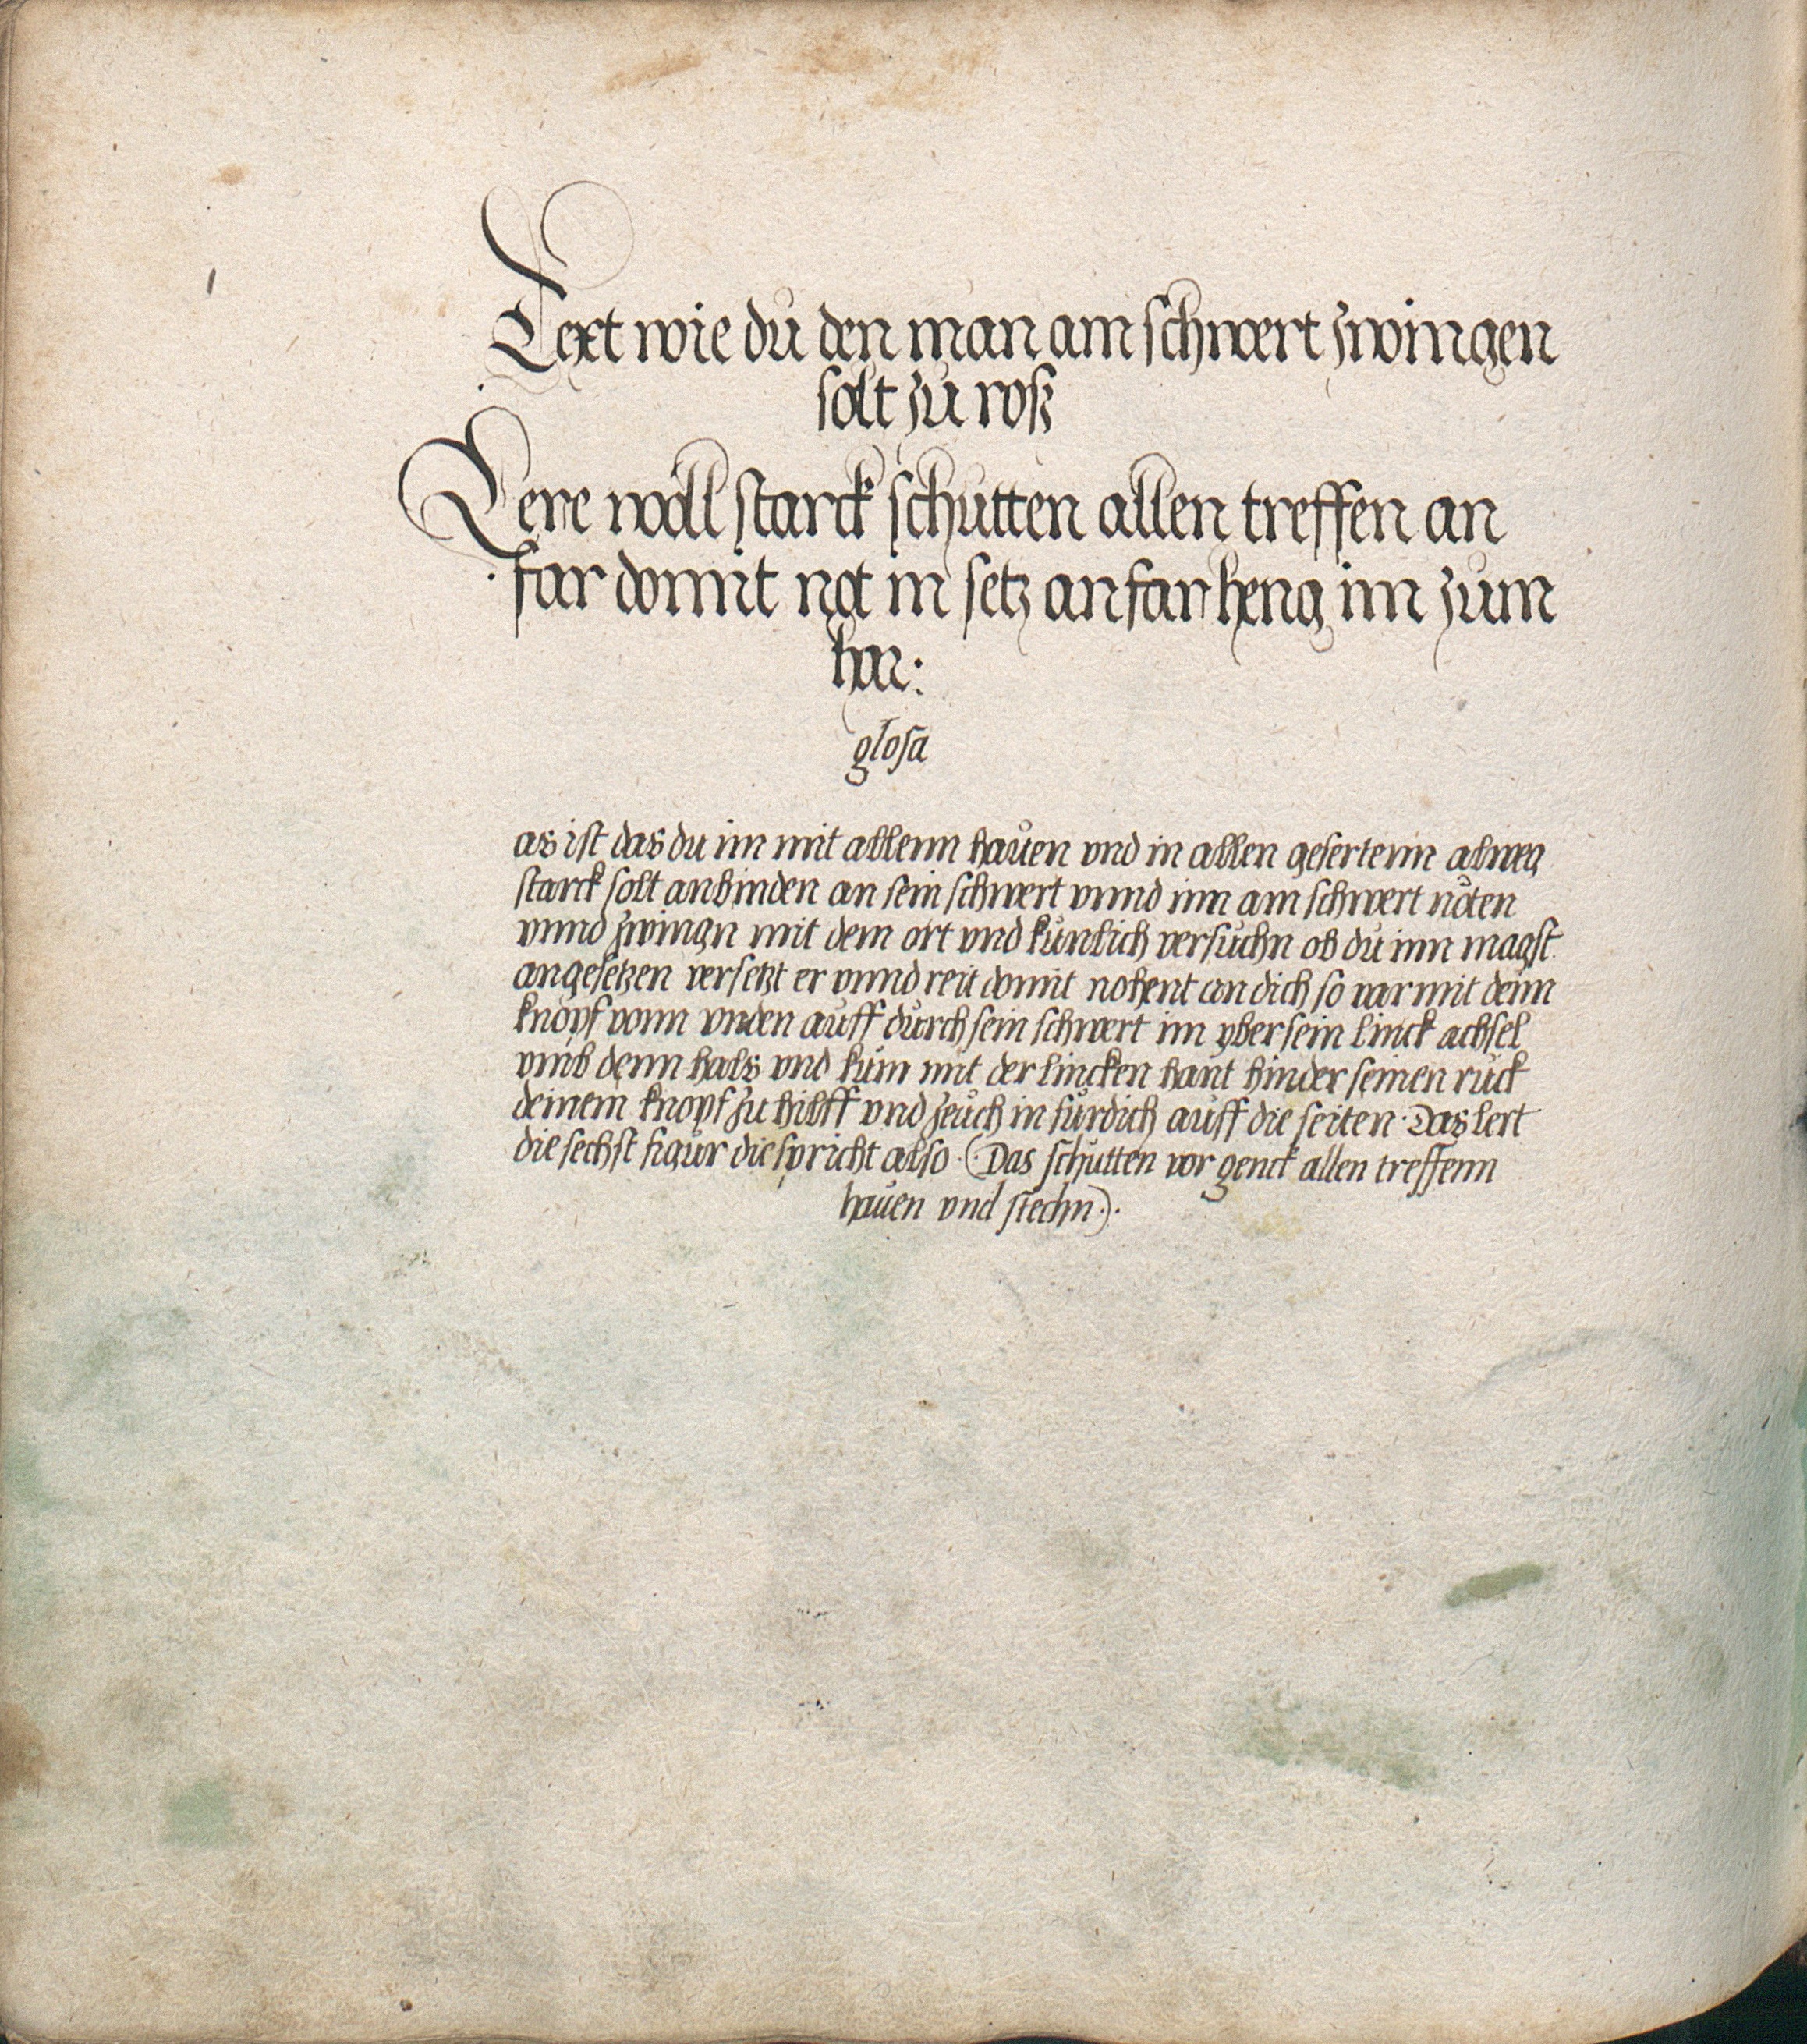 Text wie du den man am schwert zwingen
solt zu roß
Lere woll starck schutten allen treffen an
far domit not in setz an far heng im zum
har:
glosa
as ist das du im mit allenn hauen vnd in allen gefertenn alweg
starck solt anbinden an sein schwert vnnd inn am schwert nöten
vnnd zwingn mit dem ort vnd kunlich versuchn ob du inn magst
angesetzen versetzt er vnnd reit domit nohent an dich so var mit deim
knopf vonn vnden auff durch sein schwert im yber sein linck achsel
vmb denn hals vnd kum mit der lincken hant hinder seinen ruck
deinem knopf zu hilff vnd zeuch in fur dich auff die seiten · Das lert
die sechst figur die spricht also · (· Das schutten vor genck allen treffenn
hauen vnd stechn ·) ·